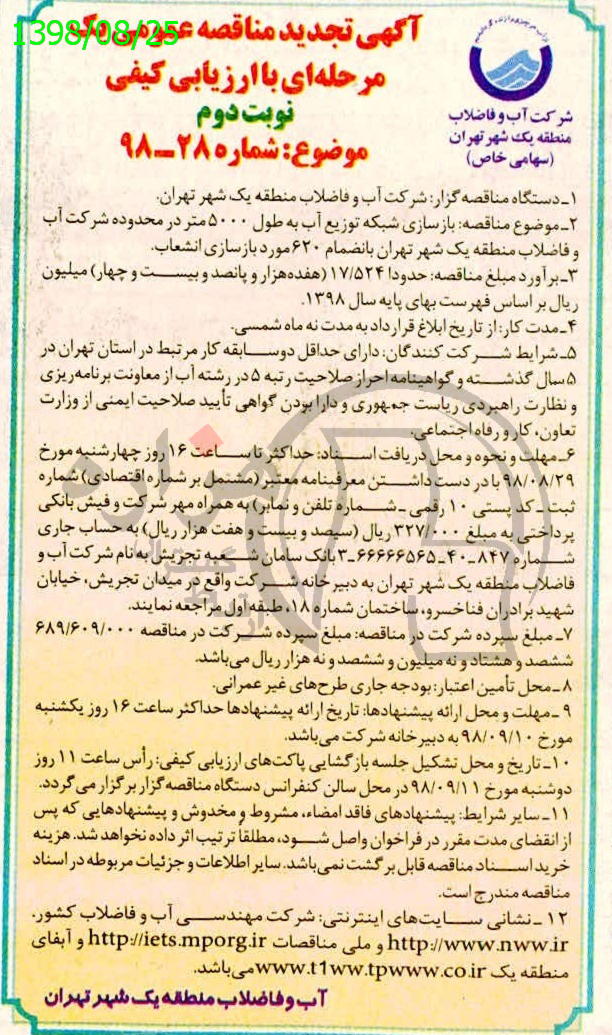 1398/08/25
آگهی تجدید مناقصه عمومی یک
مرحله‌ای با ارزیابی کیفی
نوبت دوم
موضوع: شماره ۲۸ــ۹۸
شرکت آب و فاضلاب
منطقه یک شهر تهران
(سهامی خاص)
۱ـ دستگاه مناقصه گزار: شرکت آب و فاضلاب منطقه یک شهر تهران.
۲ـ موضوع مناقصه: بازسازی شبکه توزیع آب به طول ۵۰۰۰ متر در محدوده شرکت آب
و فاضلاب منطقه یک شهر تهران بانضمام ۶۲۰ مورد بازسازی انشعاب.
۳ـ برآورد مبلغ مناقصه: حدودا ۱۷/۵۲۴ (هفده هزار و پانصد و بیست و چهار) میلیون
ریال بر اساس فهرست بهای پایه سال ۱۳۹۸.
۴ـ مدت کار: از تاریخ ابلاغ قرارداد به مدت نه ماه شمسی.
۵ـ شرایط شرکت کنندگان: دارای حداقل دو سابقه کار مرتبط در استان تهران در
۵ سال گذشته و گواهینامه احراز صلاحیت رتبه ۵ در رشته آب از معاونت برنامه ریزی
و نظارت راهبردی ریاست جمهوری و دارا بودن گواهی تأیید صلاحیت ایمنی از وزارت
تعاون، کار و رفاه اجتماعی.
۶ـ مهلت و نحوه و محل دریافت اسناد: حداکثر تا ساعت ۱۶ روز چهارشنبه مورخ
۹۸/۰۸/۲۹ با در دست داشتن معرفینامه معتبر (مشتمل بر شماره اقتصادی) شماره
ثبت ـ کد پستی ۱۰ رقمی ـ شماره تلفن و نمابر) به همراه مهر شرکت و فیش بانکی
پرداختی به مبلغ ۳۲۷/۰۰۰ ریال (سیصد و بیست و هفت هزار ریال) به حساب جاری
شماره ۸۴۷ـ۴۰ـ۶۶۶۶۶۵۶۵ـ۳ بانک سامان شعبه تجریش به نام شرکت آب و
فاضلاب منطقه یک شهر تهران به دبیرخانه شرکت واقع در میدان تجریش، خیابان
شهید برادران فناخسرو، ساختمان شماره ۱۸، طبقه اول مراجعه نمایند.
۷ـ مبلغ سپرده شرکت در مناقصه: مبلغ سپرده شرکت در مناقصه ۶۸۹/۶۰۹/۰۰۰
ششصد و هشتاد و نه میلیون و ششصد و نه هزار ریال می‌باشد.
۸ـ محل تأمین اعتبار: بودجه جاری طرح‌های غیر عمرانی.
۹ـ مهلت و محل ارائه پیشنهادها: تاریخ ارائه پیشنهادها حداکثر ساعت ۱۶ روز یکشنبه
مورخ ۹۸/۰۹/۱۰ به دبیرخانه شرکت می‌باشد.
۱۰ـ تاریخ و محل تشکیل جلسه بازگشایی پاکت‌های ارزیابی کیفی: رأس ساعت ۱۱ روز
دوشنبه مورخ ۹۸/۰۹/۱۱ در محل سالن کنفرانس دستگاه مناقصه گزار برگزار می گردد.
۱۱ـ سایر شرایط: پیشنهادهای فاقد امضاء، مشروط و مخدوش و پیشنهادهایی که پس
از انقضای مدت مقرر در فراخوان واصل شود، مطلقاً ترتیب اثر داده نخواهد شد. هزینه
خرید اسناد مناقصه قابل برگشت نمی‌باشد. سایر اطلاعات و جزئیات مربوطه در اسناد
مناقصه مندرج است.
۱۲ـ نشانی سایت‌های اینترنتی: شرکت مهندسی آب و فاضلاب کشور.
http://www.nww.ir و ملی مناقصات http://iets.mporg.ir و آبفای
منطقه یک www.t1ww.tpwww.co.ir می‌باشد.
آب و فاضلاب منطقه یک شهر تهران